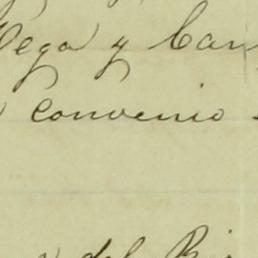 Vega y Can
convenio
del Ri